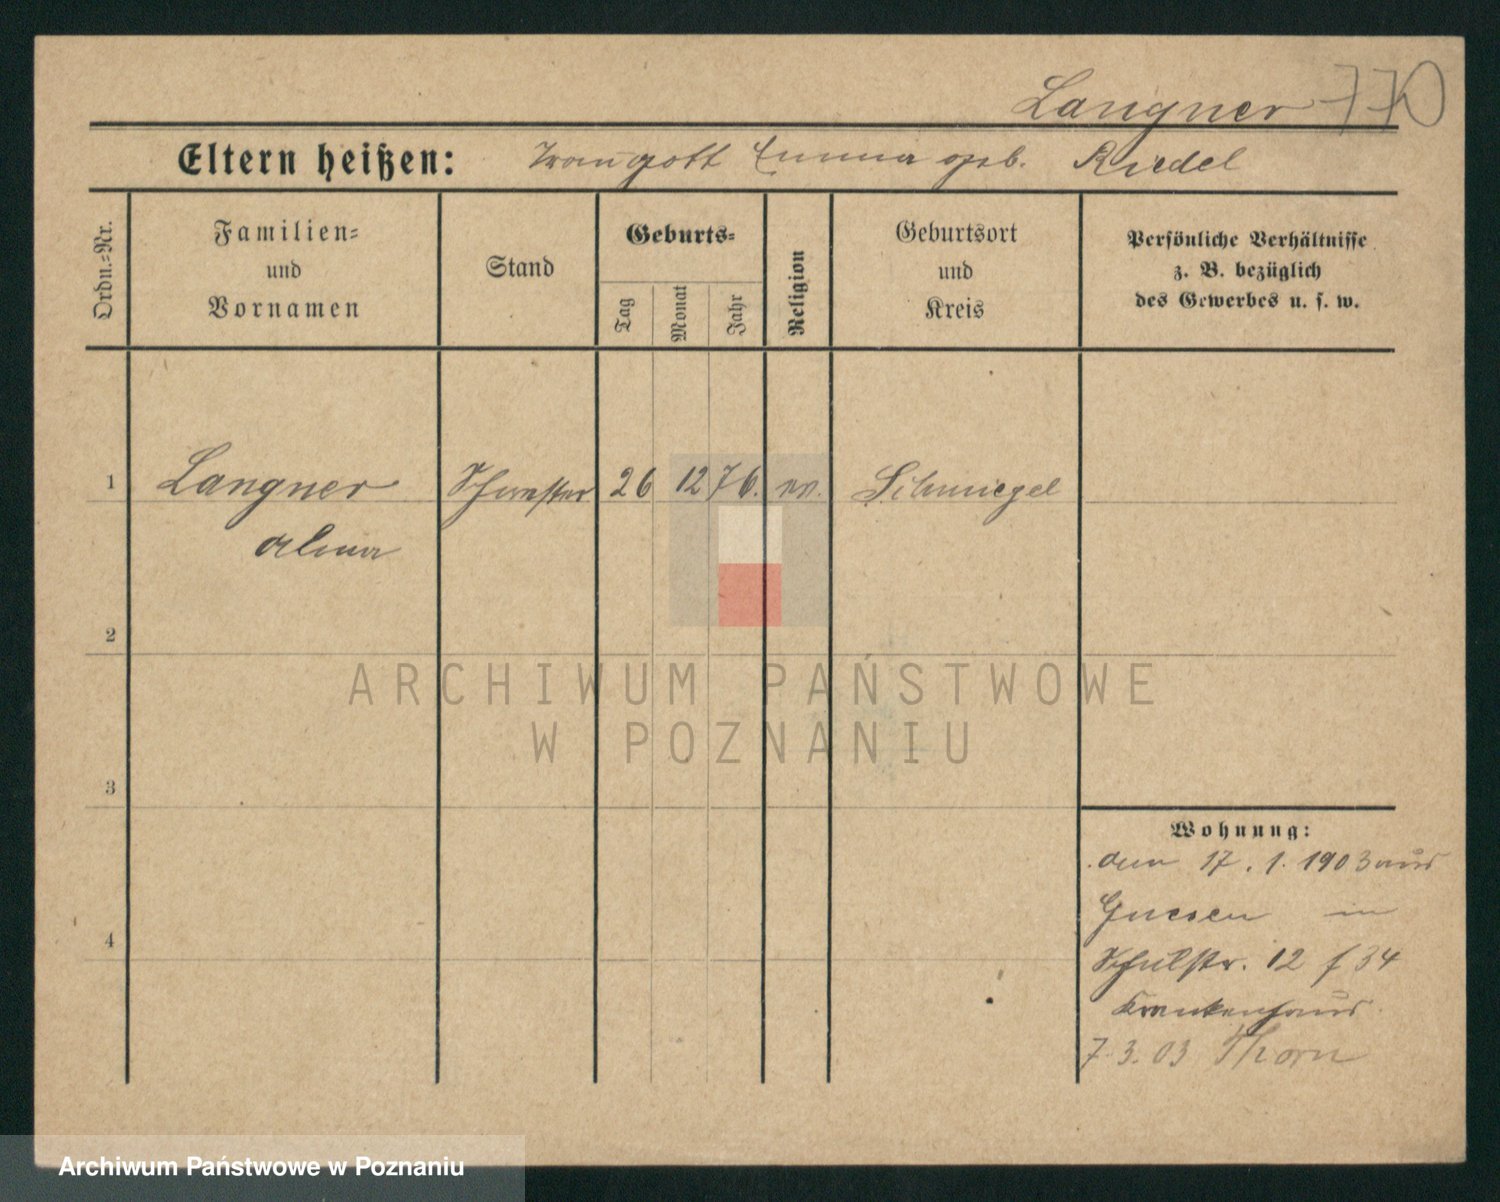 Langner 770
Eltern heißen: Traugott Emma geb. Riedel
Ordn.-Nr.
Familien-
und
Vornamen
Stand
Geburts-
Tag
Monat
Jahr
Religion
Geburtsort
und
Kreis
Persönliche Verhältnisse
z. B. bezüglich
des Gewerbes u. s. w.
1 Langner Schwester 26 12 76. ev. Schmiegel
Alma
2
ARCHIWUM PAŃSTWOWE
W POZNANIU
3
Wohnung:
den 17. 1. 1903 aus
Gnesen in
4
Schulstr. 12 f 34
Krankenhaus
7. 3. 03 Thorn
Archiwum Państwowe w Poznaniu